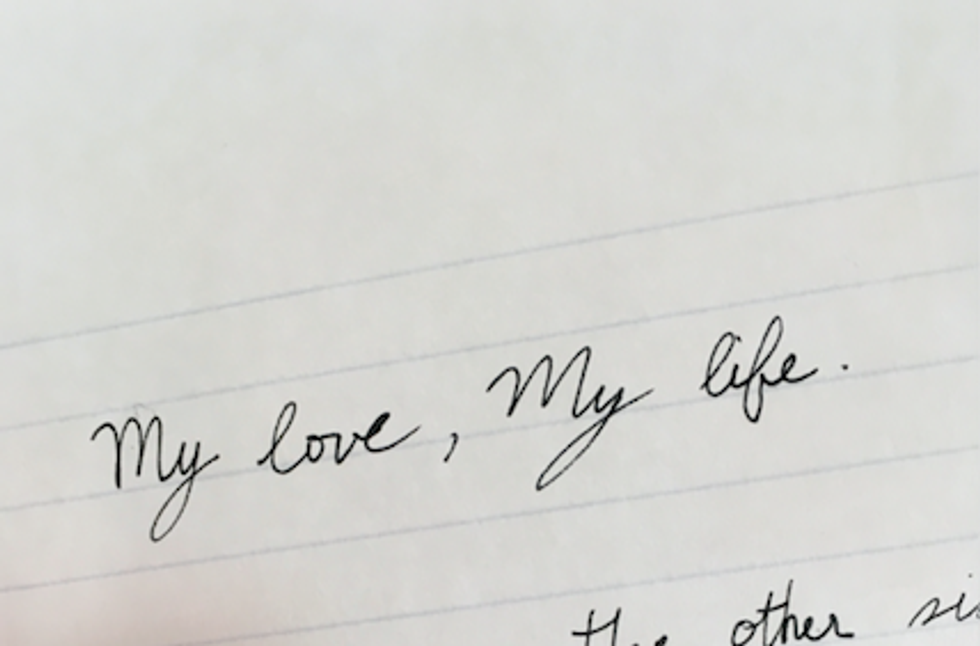 My love, My life.
the other